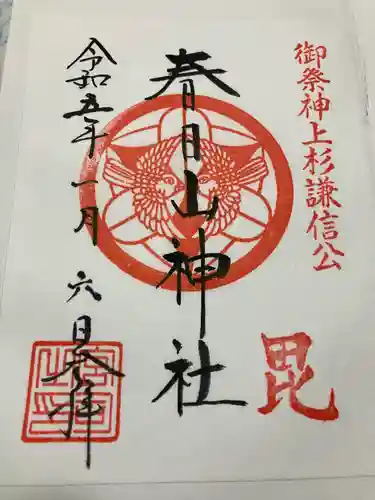 御祭神上杉謙信公
毘
春日山神社
令和五年一月六日参拝